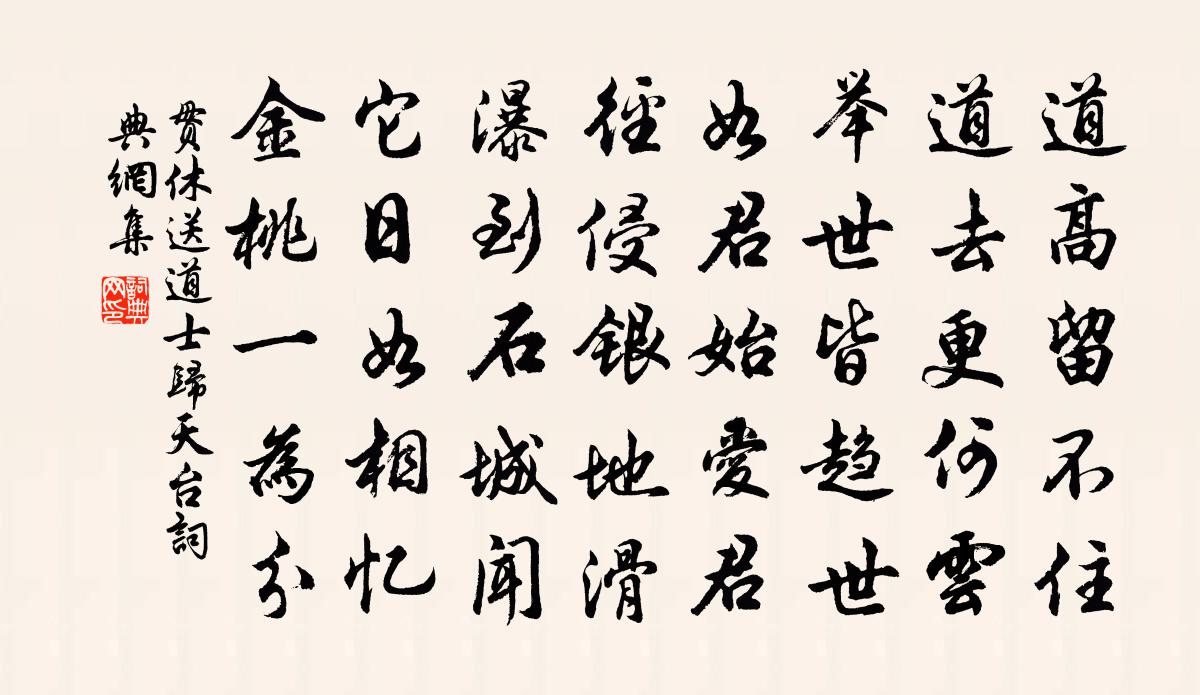 道高留不住
道去更何雲
举世皆趋世
如君始愛君
徑侵銀地滑
瀑到石城聞
它日如相忆
金桃一為分
贯休送道士歸天台詞
典網集
詞典
网印